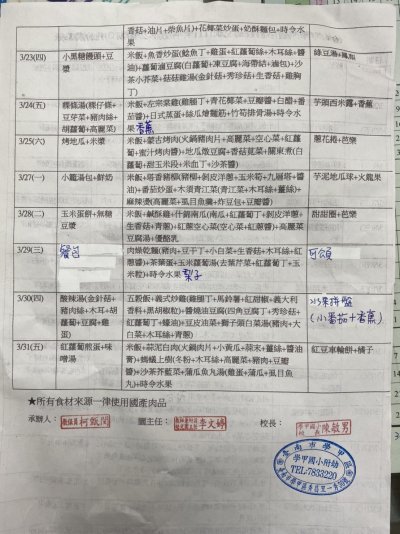 香菇+油片+柴魚片)+花椰菜炒蛋+奶酥麵包+時令水果
3/23(四)
小黑糖饅頭+豆漿
米飯+魚香炒蛋(鯰魚丁+雞蛋+紅蘿蔔絲+木耳絲+醬油)+蘿蔔滷豆腐(白蘿蔔+凍豆腐+海帶結+滷包)+沙茶小芥菜+菇菇雞湯(金針菇+秀珍菇+生香菇+雞胸丁)
綠豆湯+鳳梨
3/24(五)
粿條湯(粿仔條+豆芽菜+豬肉絲+胡蘿蔔+高麗菜)
米飯+左宗棠雞(雞腿丁+青花椰菜+豆瓣醬+白醋+番茄醬)+日式蒸蛋+絲瓜燴麵筋+竹筍排骨湯+時令水果 香蕉
芋頭西米露+香蕉
3/25(六)
烤地瓜+米漿
米飯+蒙古烤肉(火鍋豬肉片+高麗菜+空心菜+紅蘿蔔+蜜汁烤肉醬)+地瓜燉豆腐+香菇莧菜+關東煮(白蘿蔔+甜玉米段+米血丁+沙茶醬)
蔥花捲+芭樂
3/27(一)
小籠湯包+鮮奶
米飯+塔香豬柳(豬柳+剝皮洋蔥+玉米筍+九層塔+醬油)+番茄炒蛋+木須青江菜(青江菜+木耳絲+薑絲)+麻辣燙(高麗菜+虱目魚羹+炸豆包+豆瓣醬)
芋泥地瓜球+火龍果
3/28(二)
玉米蛋餅+無糖豆漿
米飯+鹹酥雞+什錦南瓜(南瓜+紅蘿蔔丁+剝皮洋蔥+生香菇+青蔥)+紅蔥空心菜(空心菜+紅蔥醬)+高麗菜豆腐湯+優酪乳
甜甜圈+芭樂
3/29(三)
餐包
肉燥乾麵(豬肉+豆干丁+小白菜+生香菇+木耳絲+紅蔥醬)+茶葉蛋+玉米蘿蔔湯(去葉芹菜+紅蘿蔔丁+玉米粒)+時令水果 梨子
可頌
3/30(四)
酸辣湯(金針菇+豬肉絲+木耳+胡蘿蔔+豆腐+雞蛋)
五穀飯+義式炒雞(雞腿丁+馬鈴薯+紅甜椒+義大利香料+黑胡椒粒)+醬燒油豆腐(四角豆腐丁+秀珍菇+紅蘿蔔丁+蠔油)+豆皮油菜+蘿子頭白菜湯(豬肉+大白菜+木耳絲)+時令水果
水果拼盤
(小番茄+香蕉)
3/31(五)
紅蘿蔔煎蛋+味噌湯
米飯+蒜泥白肉(火鍋肉片+小黃瓜+蒜末+薑絲+醬油膏)+螞蟻上樹(冬粉+木耳絲+高麗菜+豬肉+豆瓣醬)+沙茶芥藍菜+蒲瓜魚丸湯(雞蛋+蒲瓜+虱目魚丸)+時令水果
紅豆車輪餅+橘子
★所有食材來源一律使用國產肉品
承辦人:
園主任:
李文婷
校長:
陳敏男
臺南市學甲區
學甲國小附幼
TEL:7833220